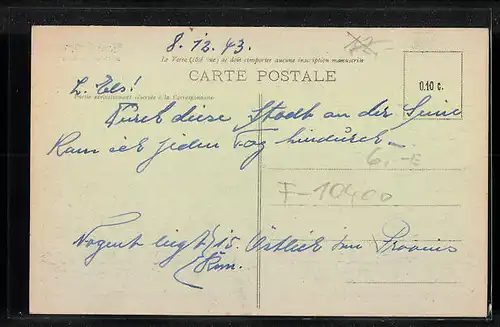 8.12.43.
Le Verso (côté vue) ne doit comporter aucune inscription manuscrite
CARTE POSTALE
0.10 c.
L. Els!
Partie exclusivement réservée à la Correspondance
Durch diese Stadt an der Seine
kam ich jeden Tag hindurch –
6,-E
F-10400
Nogent liegt 15 östlich von Provins
Km.